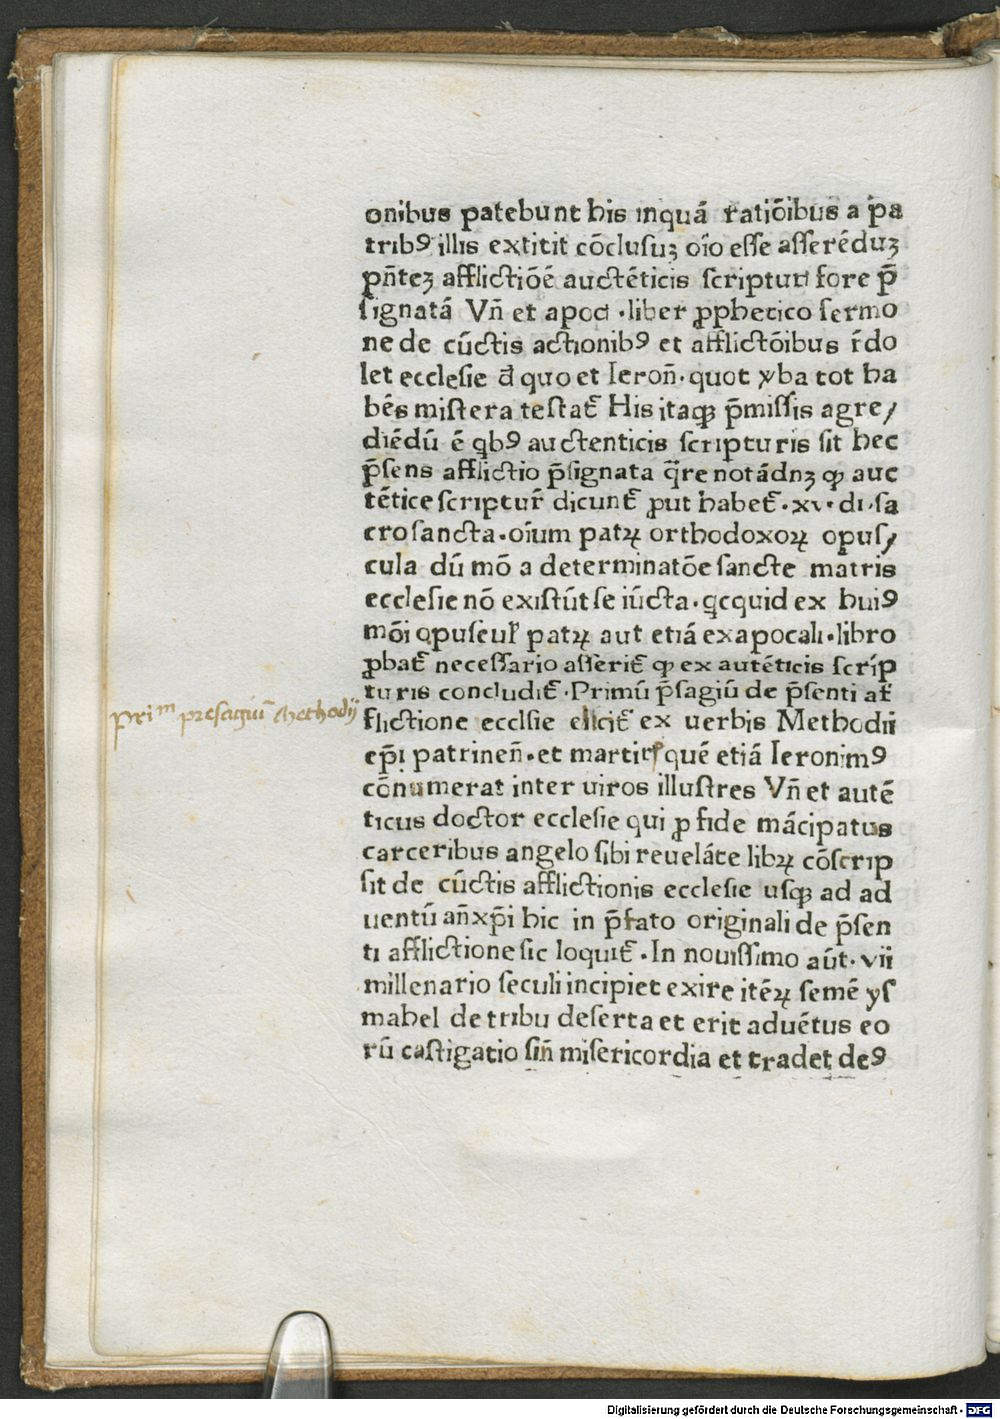 onibus patebunt his inquā ratiōibus a pa
tribꝰ illis extitit cōclusuꝫ oīo esse asserēduꝫ
pn̄teꝫ afflictiōē auctēticis scripturi fore p̄
signatā Vn̄ et apoci .liber ꝓphetico sermo
ne de cūctis actionibꝰ et afflictōibus r̄do
let ecclesie đ quo et Ieron̄. quot v̓ba tot ha
bēs mistera testat᷑ His itaqꝫ p̄missis agre/
diēdū ē qͥbꝰ auctenticis scripturis sit hec
p̄sens afflictio p̄signata qͣre notādnꝫ ꝙ auc
tētice scriptur̄ dicunt᷑ ꝓut habet᷑. xv. di. sa
crosancta. oīum patꝝ orthodoxoꝝ opus/
cula dū mō a determinatōe sancte matris
ecclesie nō existūt seiūcta. qͥcquid ex huiꝰ
mōi opuscul̓ patꝝ aut etiā ex apocali. libro
ꝓbat᷑ necessario asserit᷑ ꝙ ex autēticis scrip
turis concludit᷑. Primū p̄sagiū de p̄senti af
flictione ecclsie elicit᷑ ex uerbis Methodii
ep̄i patrinen̄. et martiris quē etiā Ieronimꝰ
cōnumerat inter uiros illustres Vn̄ et autē
ticus doctor ecclesie qui ꝓ fide mācipatus
carceribus angelo sibi reuelāte libꝝ cōscrip
sit de cūctis afflictionis ecclesie usqꝫ ad ad
uentū an̄xp̄i hic in p̄fato originali de p̄sen
ti afflictione sic loquit᷑. In nouissimo aūt. vii
millenario seculi incipiet exire itēꝝ semē ys
mahel de tribu deserta et erit aduētus eo
rū castigatio sin̄ misericordia et tradet deꝰ
priᵐ presaguī Methodij
Digitalisierung gefördert durch die Deutsche Forschungsgemeinschaft - DFG